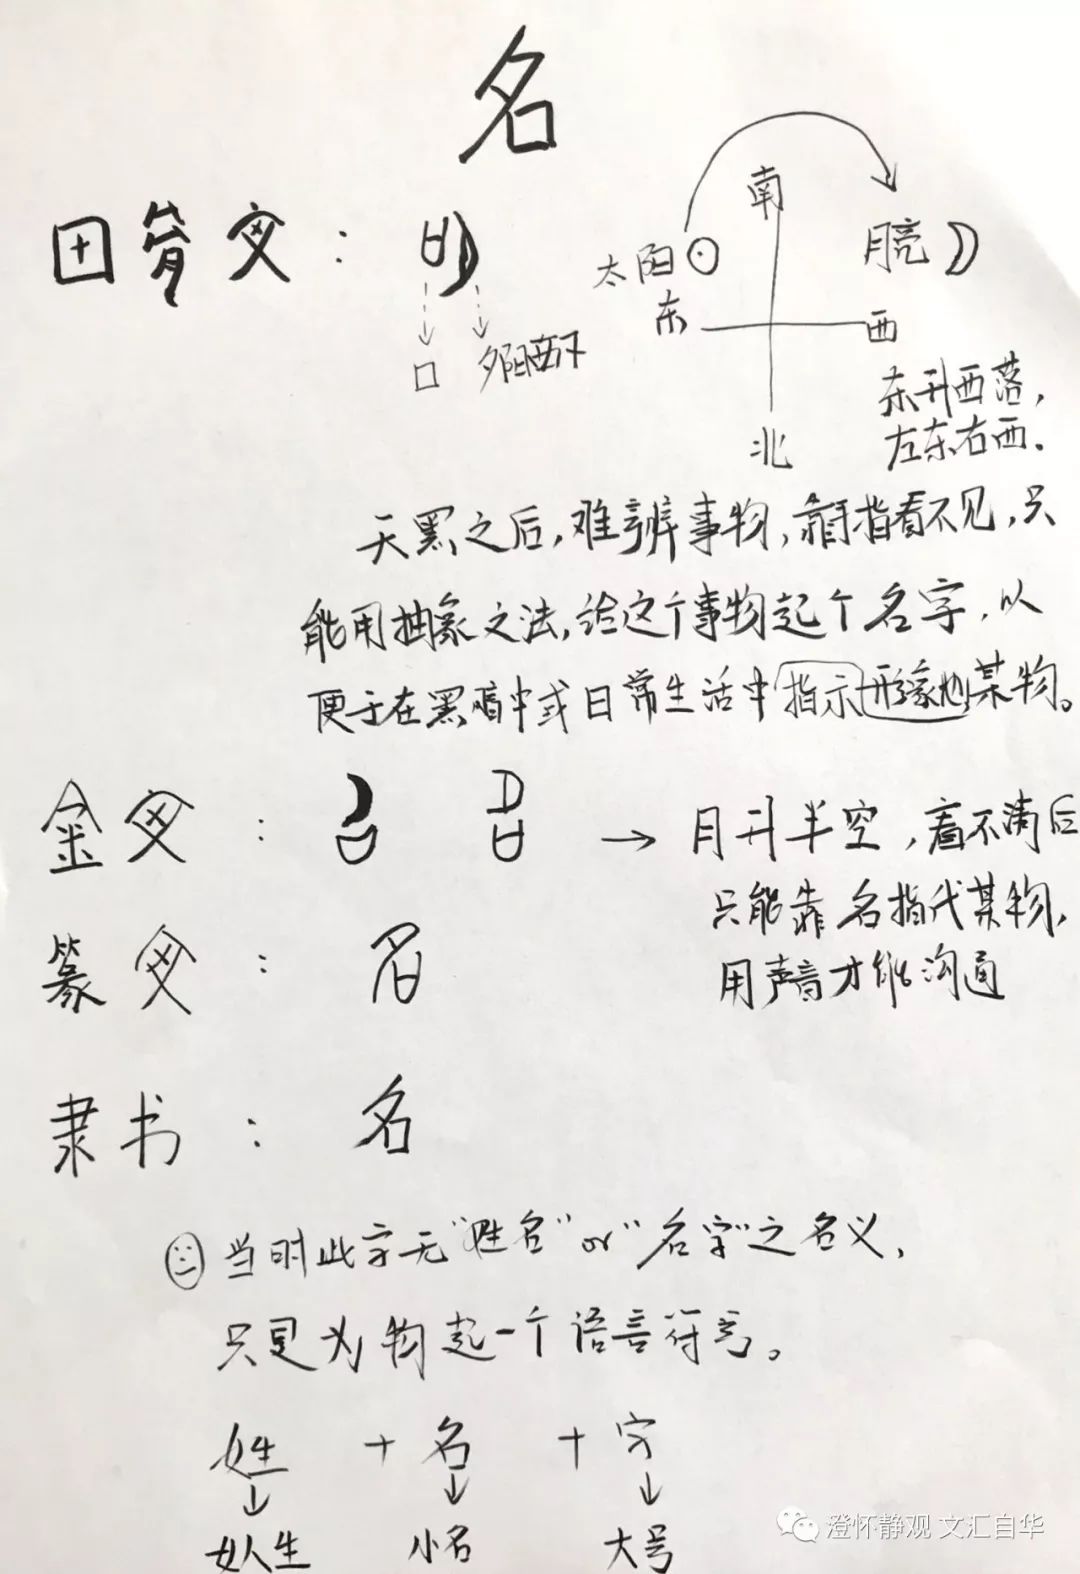 名
甲骨文：
南
太阳
月亮
东
西
口
夕阳西下
东升西落，
左东右西.
北
天黑之后，难辨事物，靠手指看不见，只
能用抽象之法，给这个事物起个名字，以
便于在黑暗中或日常生活中指示形象地某物。
金文：
→ 月升半空，看不清后
只能靠名指代某物，
用声音才能沟通
篆文：名
隶书：名
当时此字无“姓名”or“名字”之名义，
只是为物起一个语言符号。
姓 + 名 + 字
女人生 小名 大号
澄怀静观 文汇自华